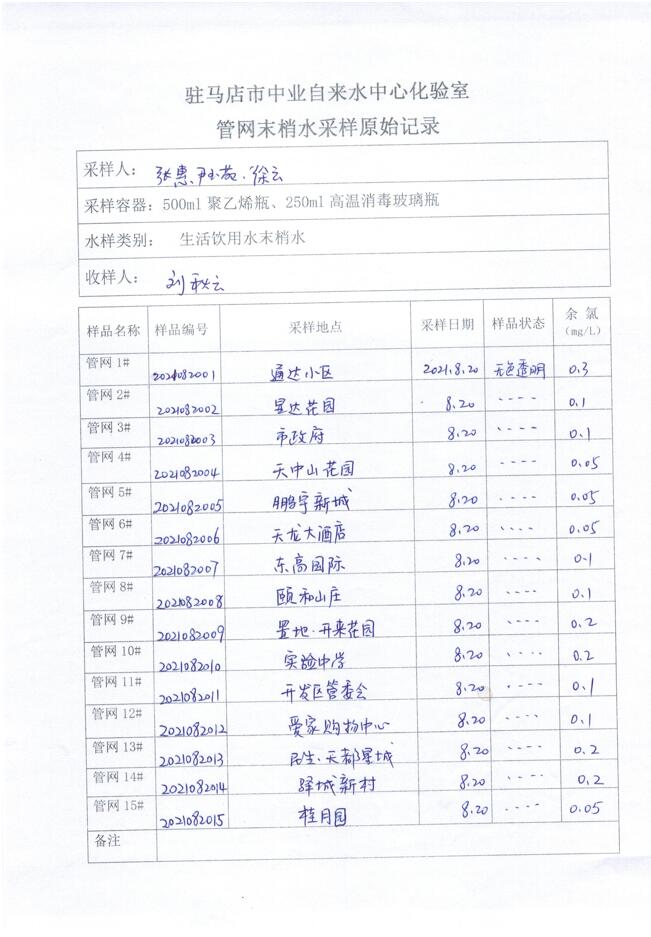 驻马店市中业自来水中心化验室
管网末梢水采样原始记录
采样人： 张惠、尹玉茹、徐云
采样容器：500ml 聚乙烯瓶、250ml 高温消毒玻璃瓶
水样类别： 生活饮用水末梢水
收样人： 刘秋云
样品名称 样品编号 采样地点 采样日期 样品状态 余 氯 (mg/L)
管网 1# 2021082001 通达小区 2021.8.20 无色透明 0.3
管网 2# 2021082002 昱达花园 8.20 ---- 0.1
管网 3# 2021082003 市政府 8.20 ---- 0.1
管网 4# 2021082004 天中山花园 8.20 ---- 0.05
管网 5# 2021082005 鹏宇新城 8.20 ---- 0.05
管网 6# 2021082006 天龙大酒店 8.20 ---- 0.05
管网 7# 2021082007 东高国际 8.20 ---- 0.1
管网 8# 2021082008 颐和山庄 8.20 ---- 0.1
管网 9# 2021082009 置地·开来花园 8.20 ---- 0.2
管网 10# 2021082010 实验中学 8.20 ---- 0.2
管网 11# 2021082011 开发区管委会 8.20 ---- 0.1
管网 12# 2021082012 爱家购物中心 8.20 ---- 0.1
管网 13# 2021082013 民生·天都星城 8.20 ---- 0.2
管网 14# 2021082014 驿城新村 8.20 ---- 0.2
管网 15# 2021082015 桂月园 8.20 ---- 0.05
备注